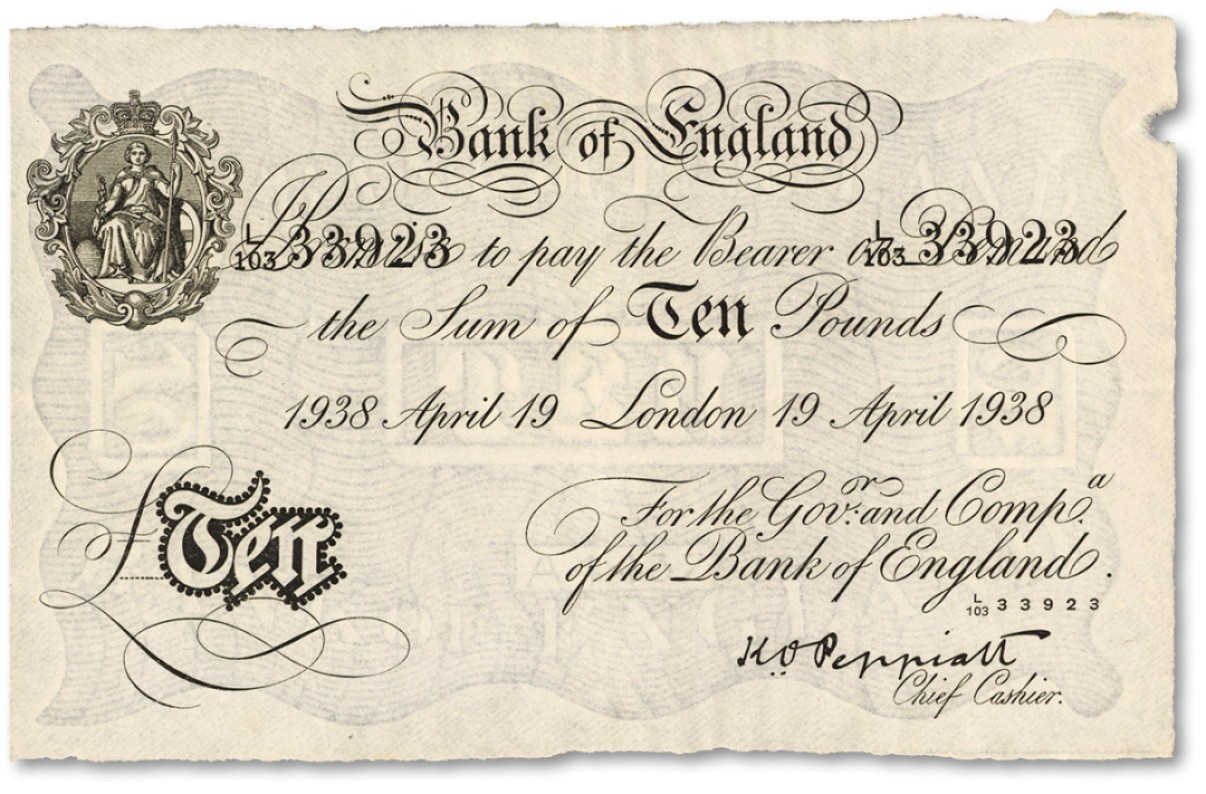 Bank of England
L/103 33923 L/103 33923
I Promise to pay the Bearer on Demand
the Sum of Ten Pounds
1938 April 19 London 19 April 1938
£Ten
For the Gov.r and Comp.a
of the Bank of England.
L/103 33923
K O Peppiatt
Chief Cashier.